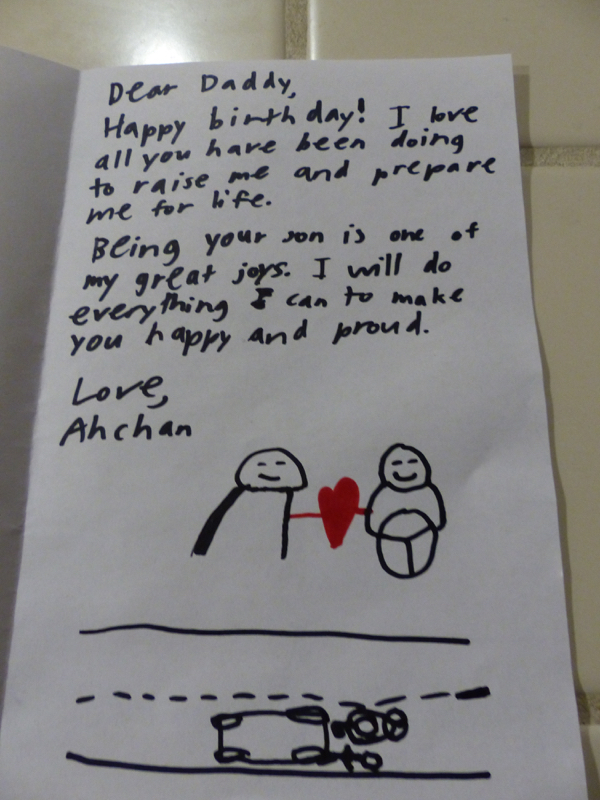 Dear Daddy,
Happy birthday! I love
all you have been doing
to raise me and prepare
me for life.
Being your son is one of
my great joys. I will do
everything I can to make
you happy and proud.
Love,
Ahchan